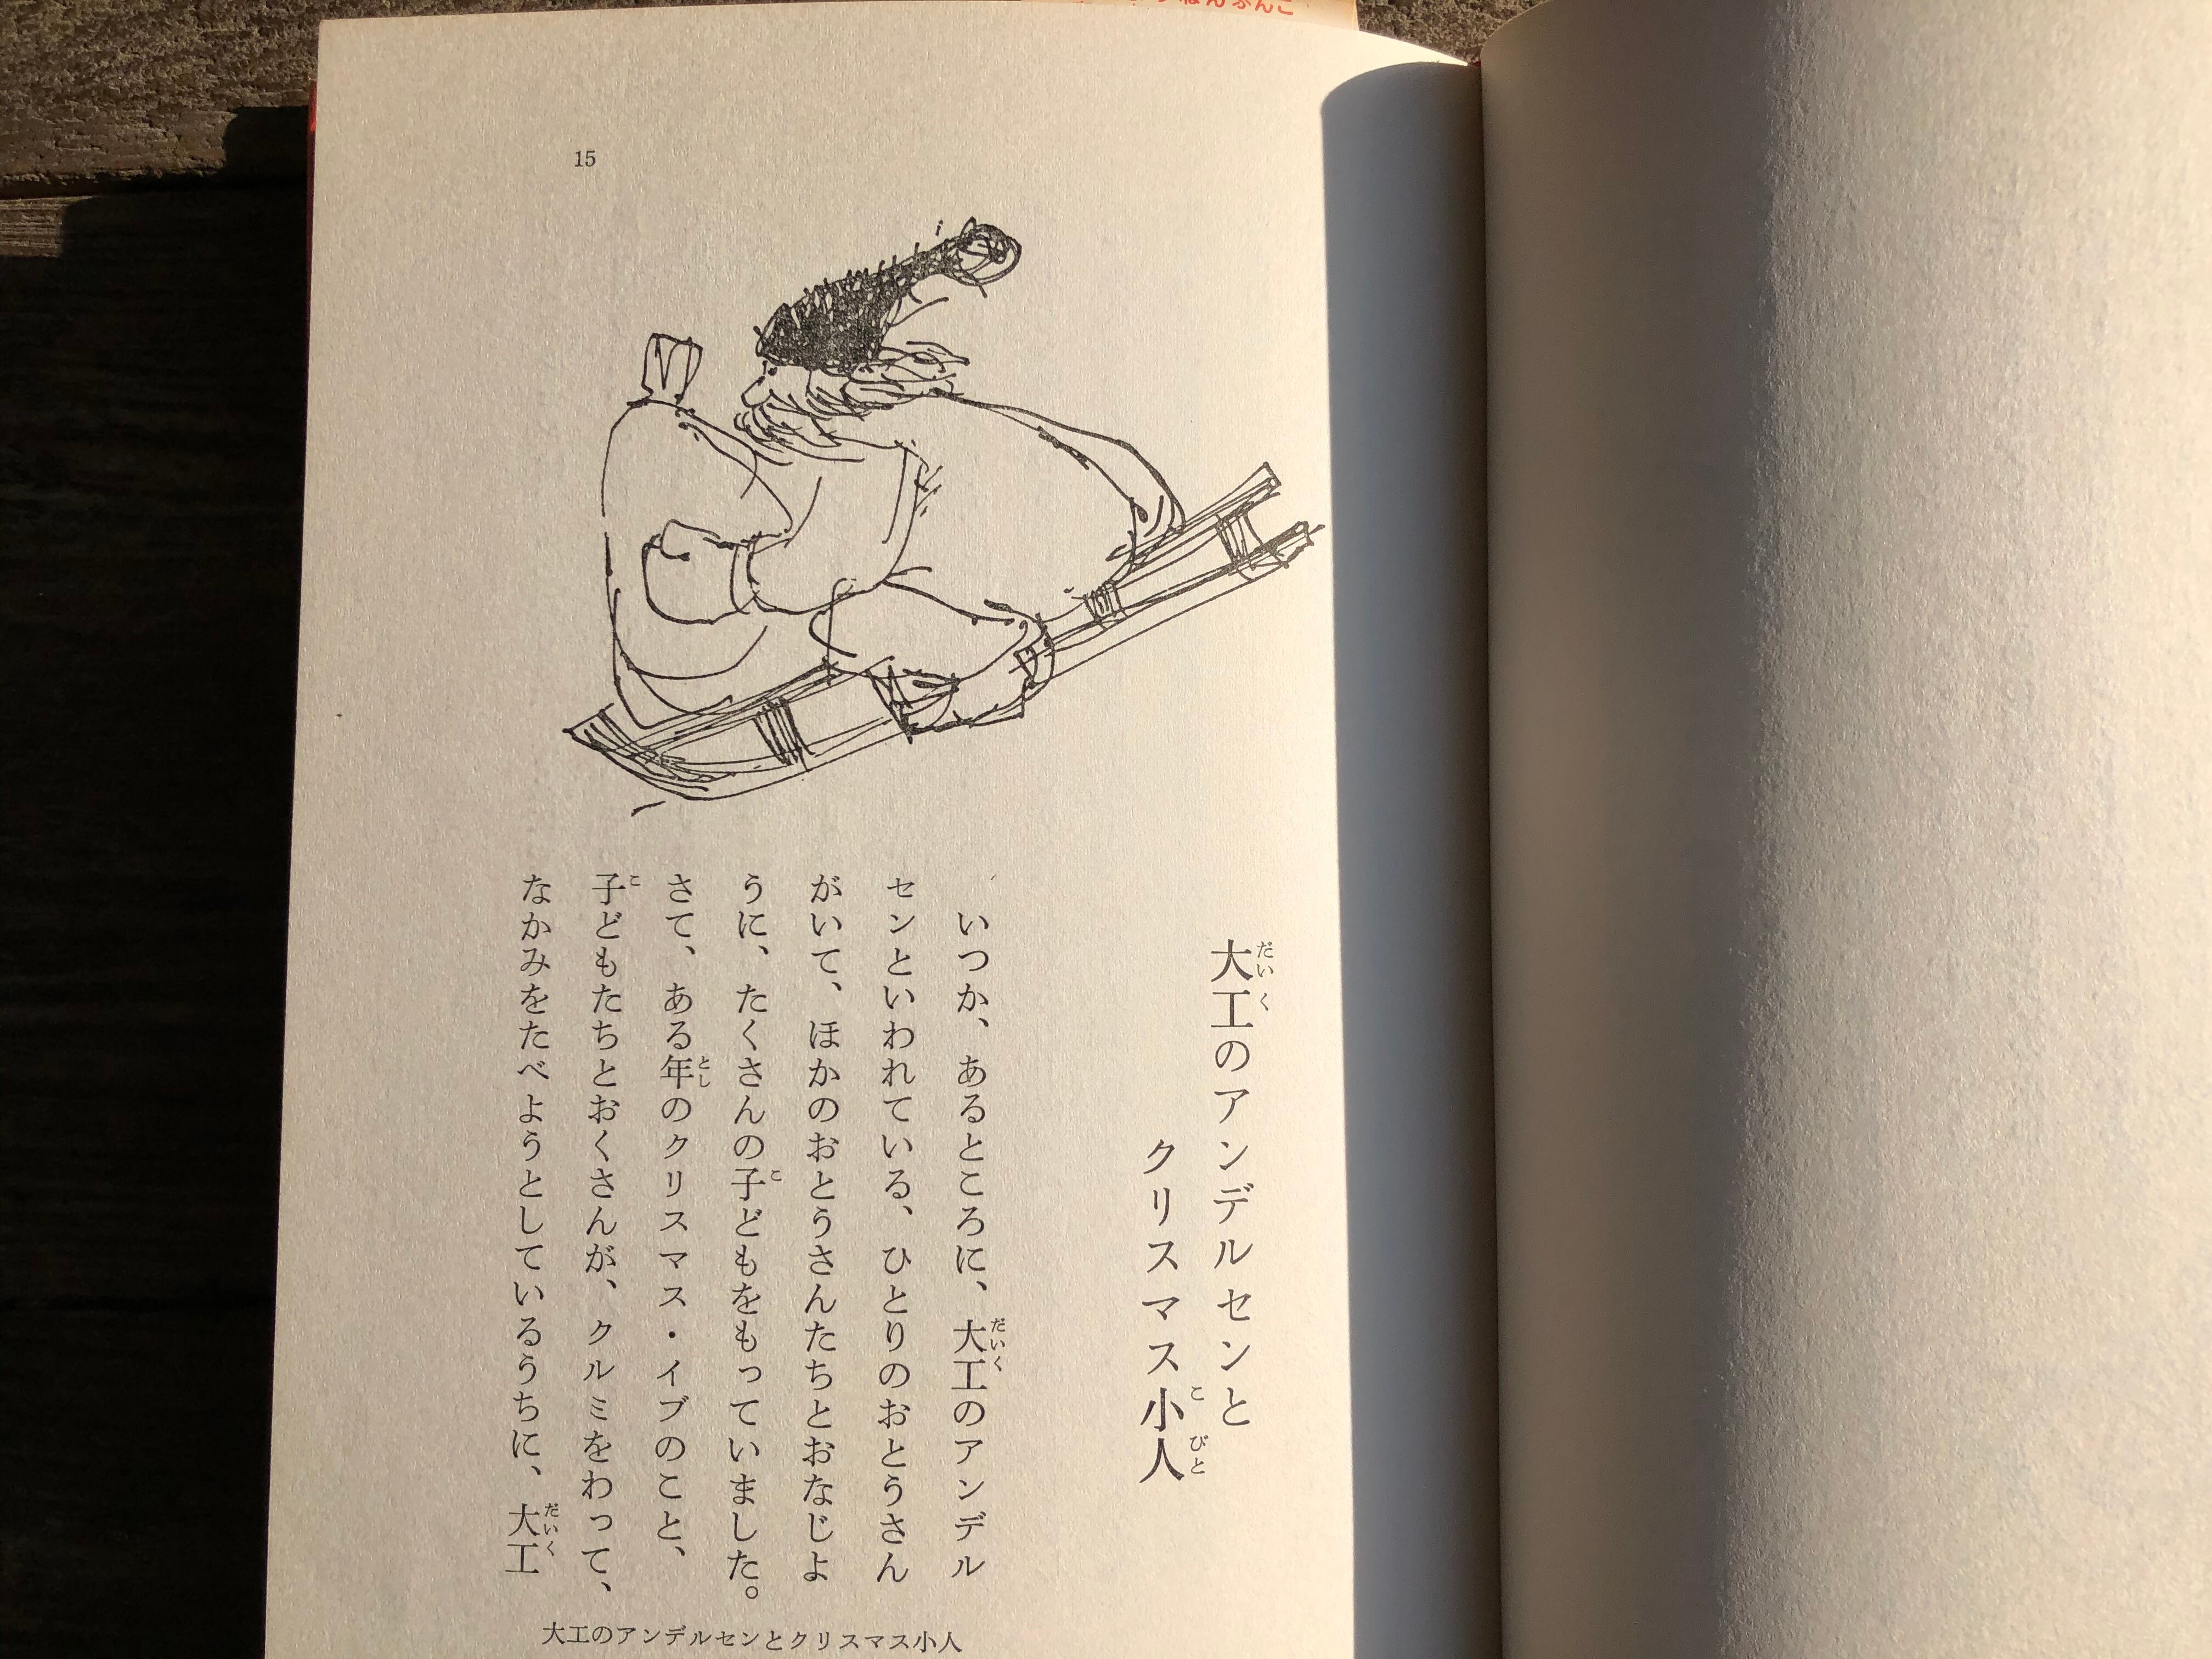 大工のアンデルセンと
クリスマス小人
いつか、あるところに、大工のアンデル
センといわれている、ひとりのおとうさん
がいて、ほかのおとうさんたちとおなじよ
うに、たくさんの子どもをもっていました。
さて、ある年のクリスマス・イブのこと、
子どもたちとおくさんが、クルミをわって、
なかみをたべようとしているうちに、大工
大工のアンデルセンとクリスマス小人
15